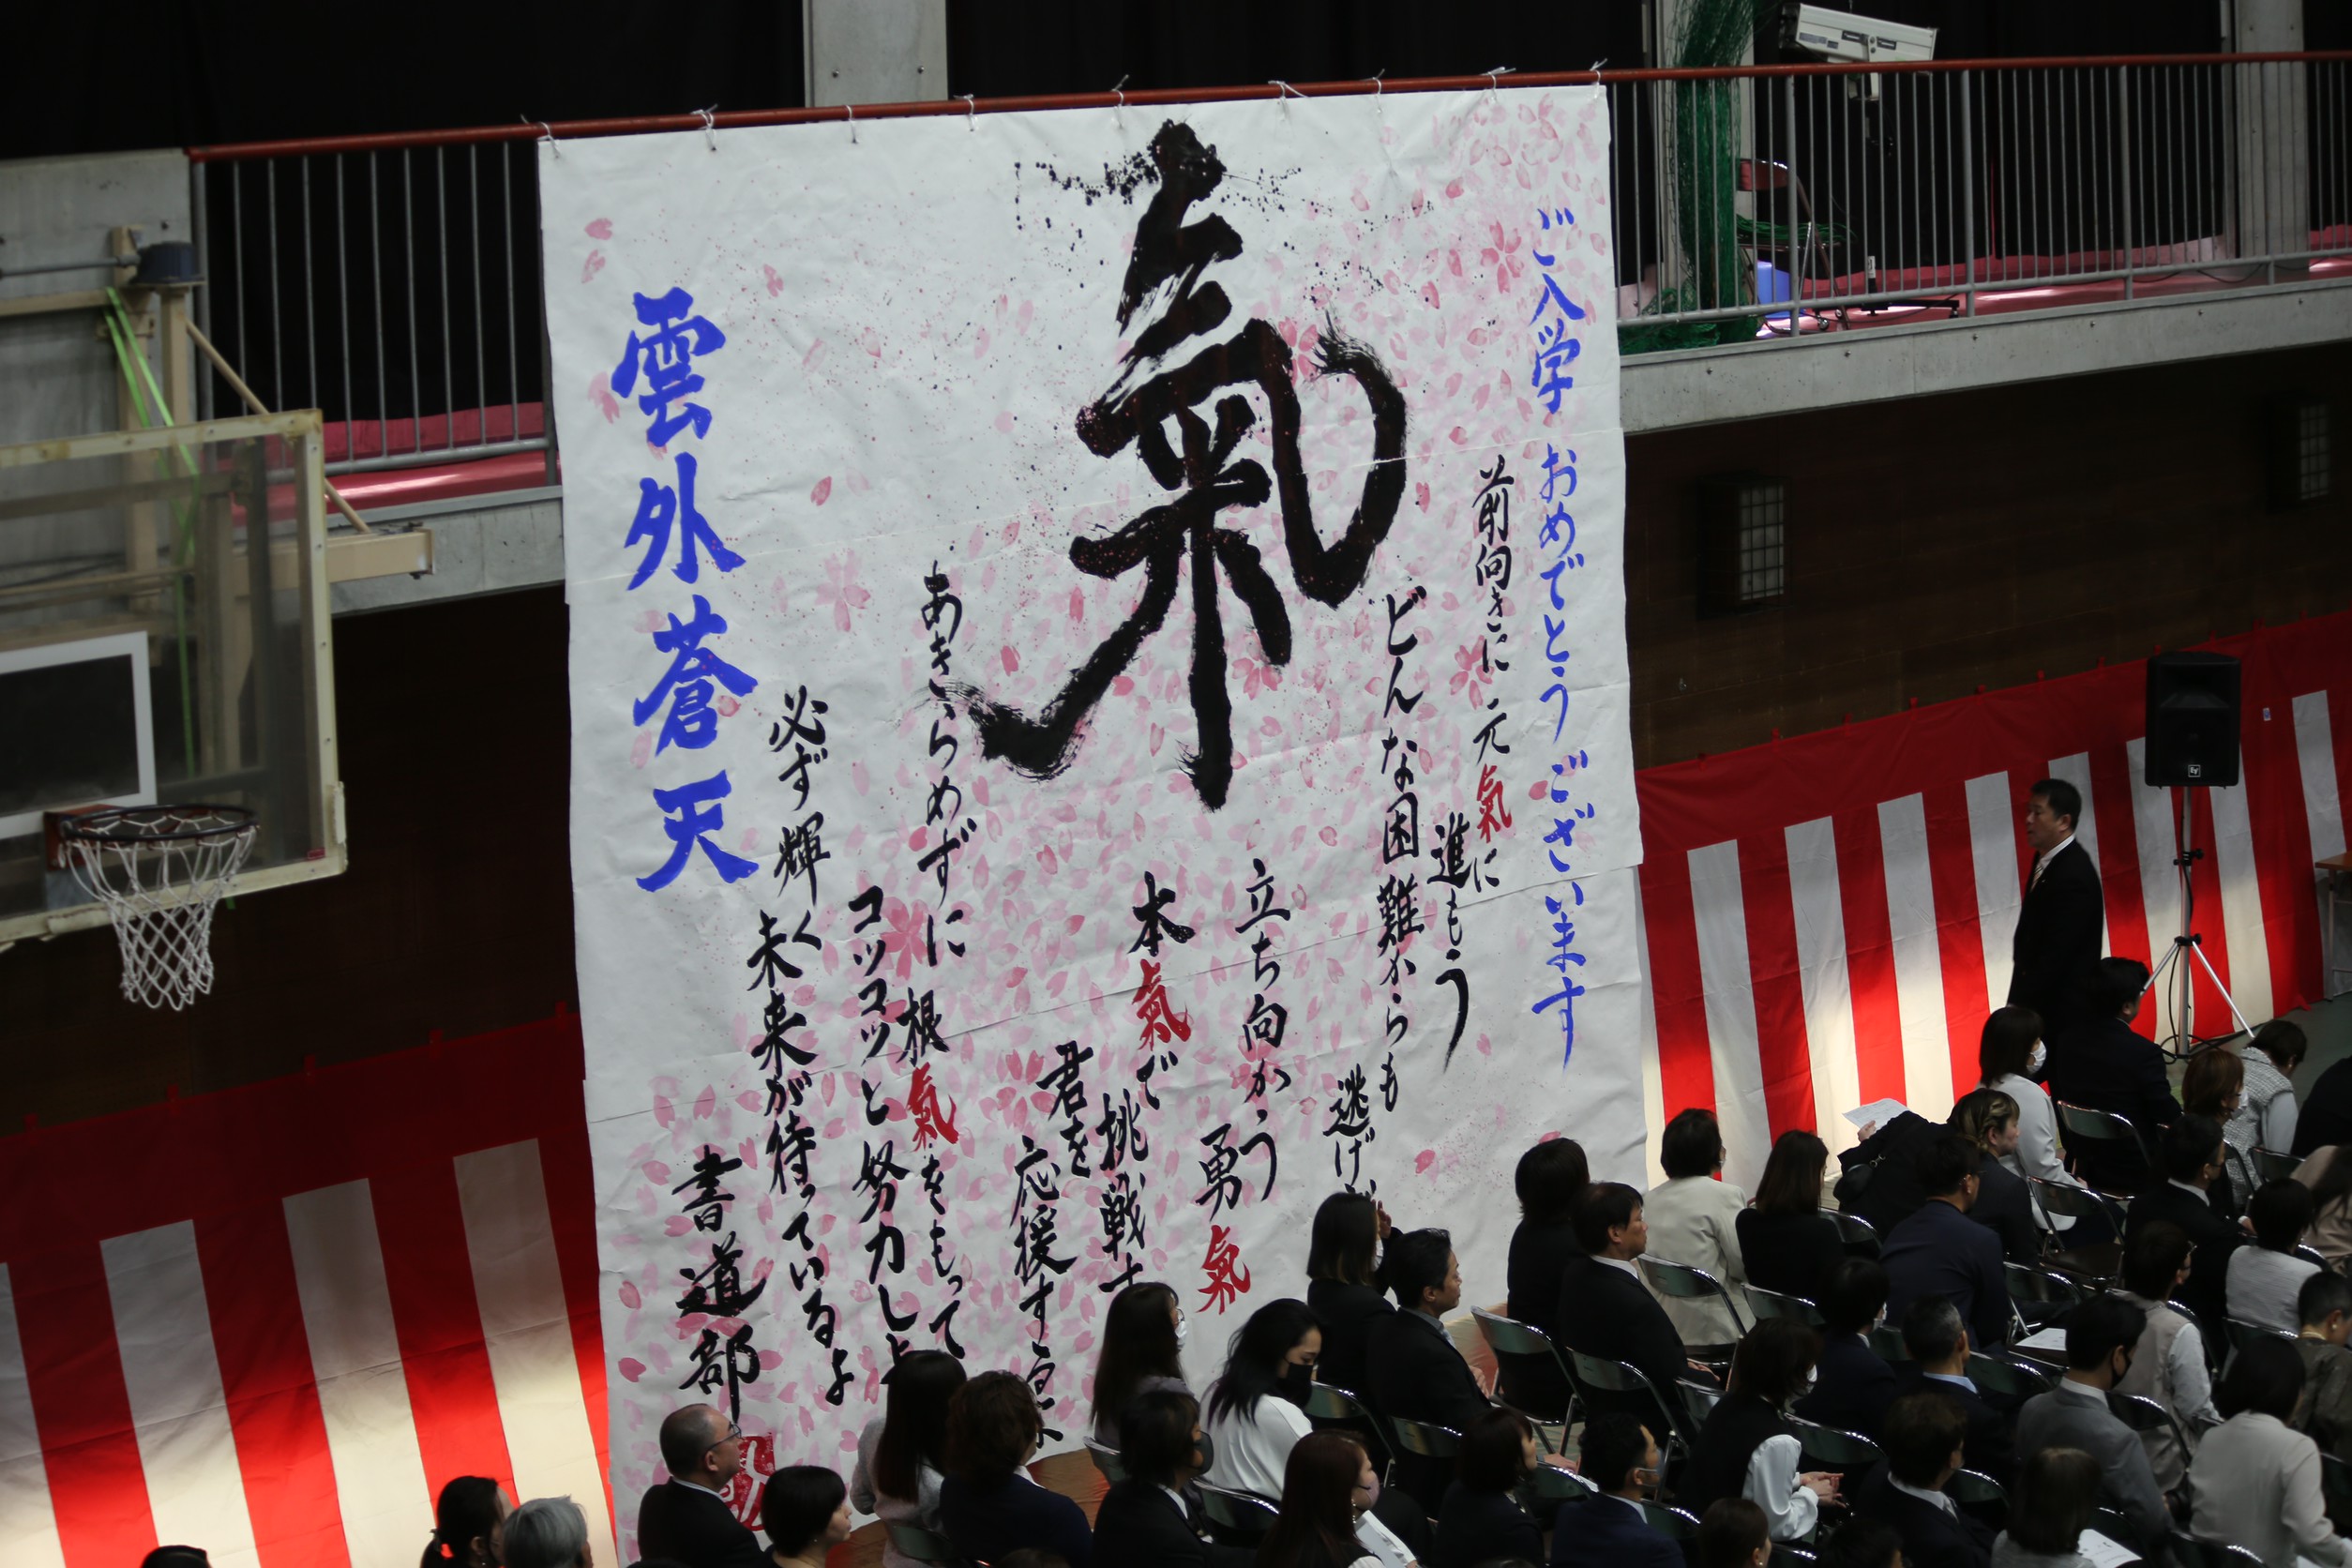 ご入学 おめでとう ございます
前向きに 元氣に
進もう
どんな困難からも
逃げ
立ち向かう
勇氣
氣
本氣で
挑戦す
君を
応援する
あきらめずに 根氣をもって
コツコツと努力しよ
必ず輝く
未来が待っているよ
雲外蒼天
書道部